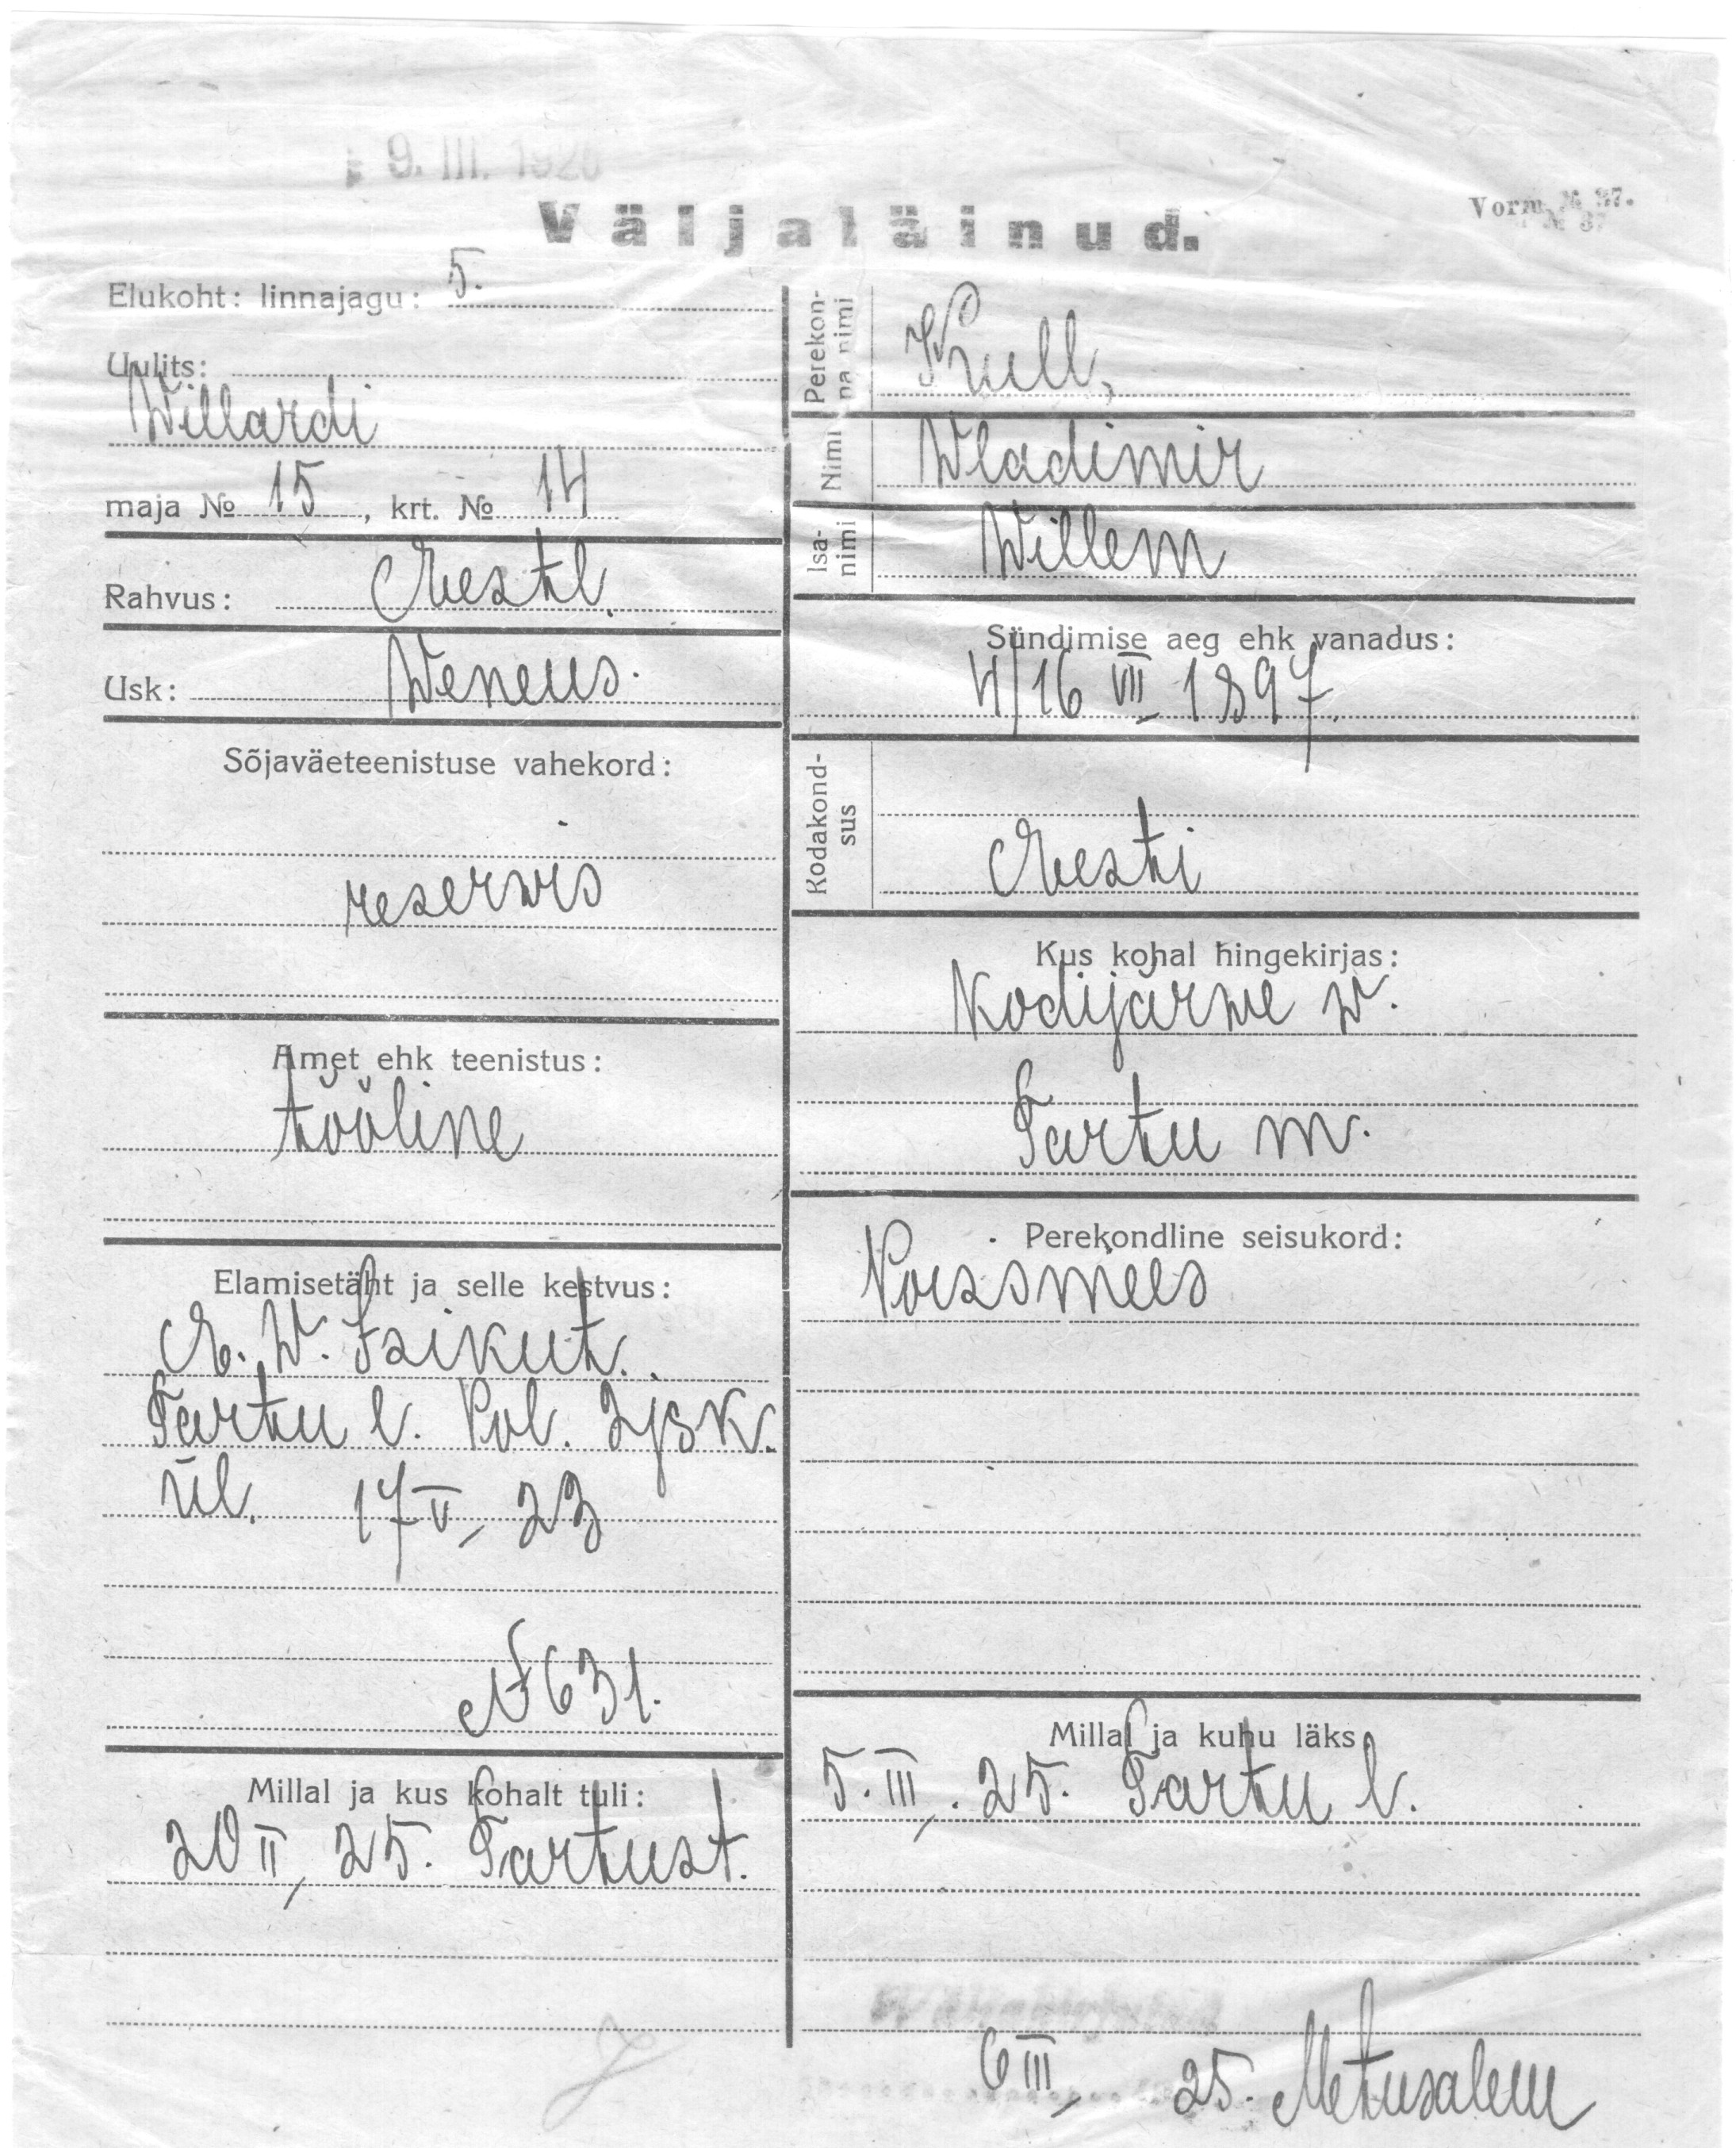 9. III. 192
Väljaläinud.
Vorm № 37.
Elukoht: linnajagu: 5.
Uulits:
Willardi
maja № 15, krt. № 14
Rahvus: Eestl.
Usk: Weneus.
Sõjaväeteenistuse vahekord:
reserwis
Amet ehk teenistus:
tööline
Elamisetäht ja selle kestvus:
E. W. Isikut.
Tartu l. Pol. 2 jsk.
ül. 17 V, 23
№ 631.
Millal ja kus kohalt tuli:
20 II, 25. Tartust.
Perekon-
na nimi
Krull,
Nimi Wladimir
Isa-
nimi
Willem
Sündimise aeg ehk vanadus:
4/16 VII 1897.
Kodakond-
sus
Eesti
Kus kohal hingekirjas:
Kodijärwe w.
Tartu m.
Perekondline seisukord:
Poissmees
Millal ja kuhu läks
5. III, 25. Tartu l.
6 III, 25. Metusalem